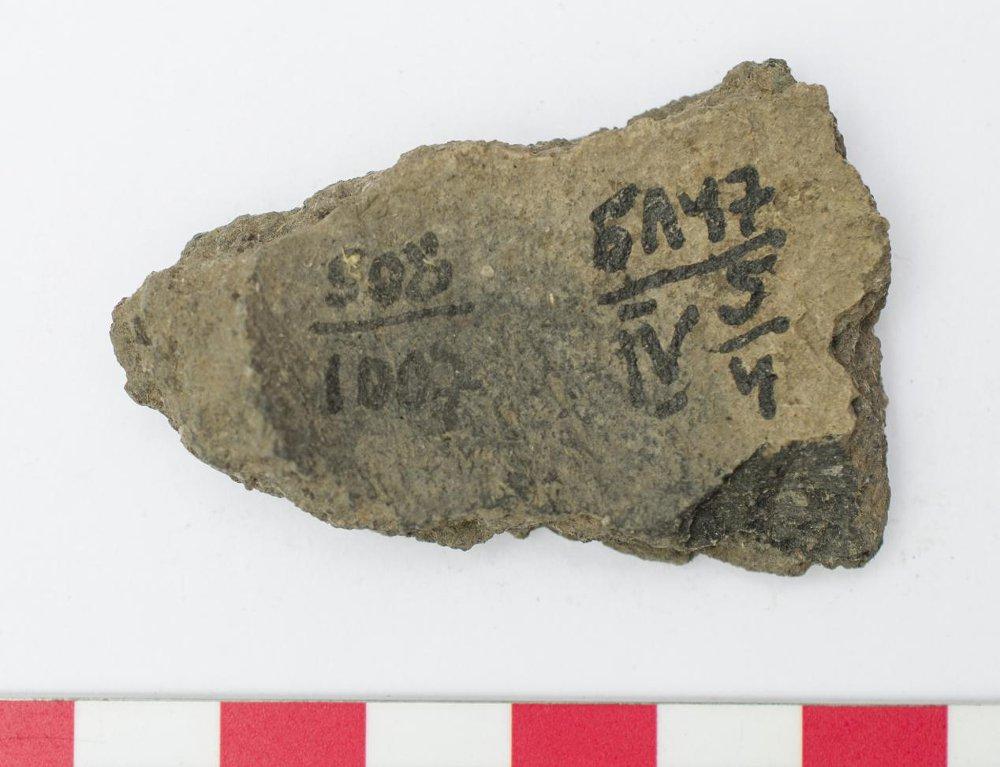 508
1007
БЛ47
IV 5/4